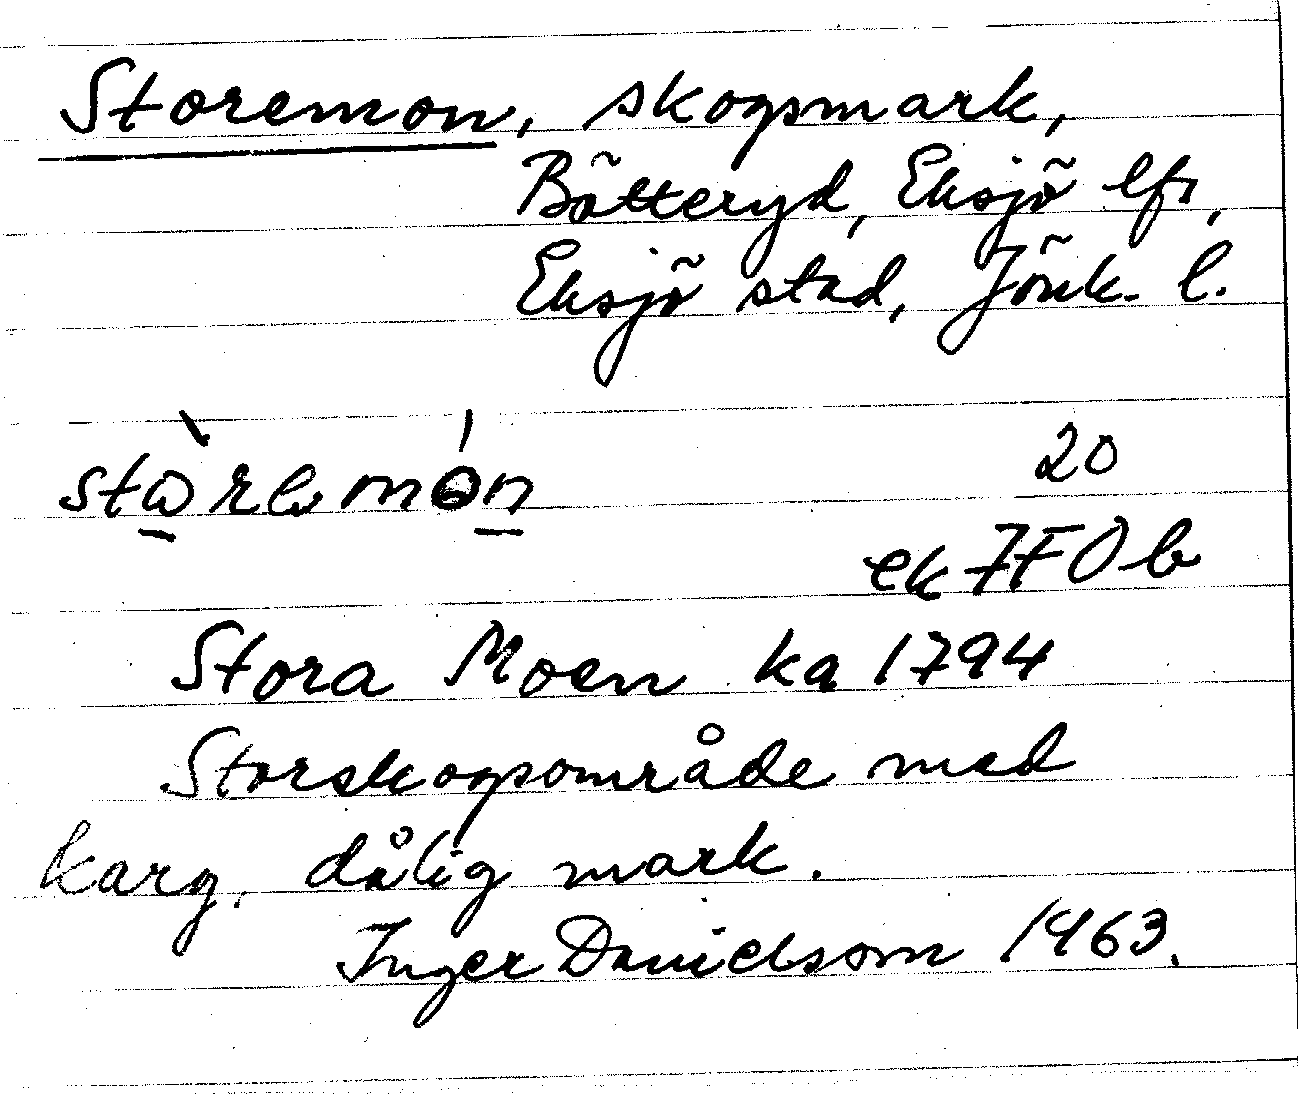 Storemon, skogsmark,
Bötteryd, Eksjö lfs,
Eksjö stad, Jönk. l.
20
ek 7F0b
Stora Moen ka 1794
Storskogsområde med
karg, dålig mark.
Inger Danielsson 1963.